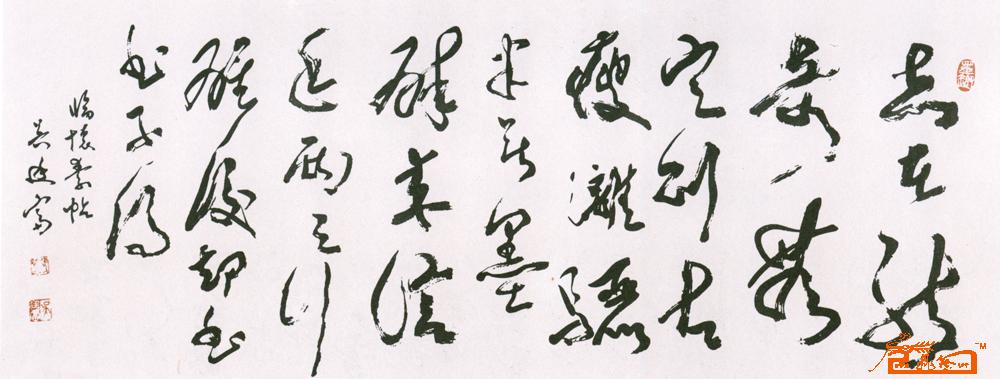 志在新
奇無
定則古
瘦灕驪
半無墨
醉來信
手兩三行
醒後却書
書不得
臨懷素帖